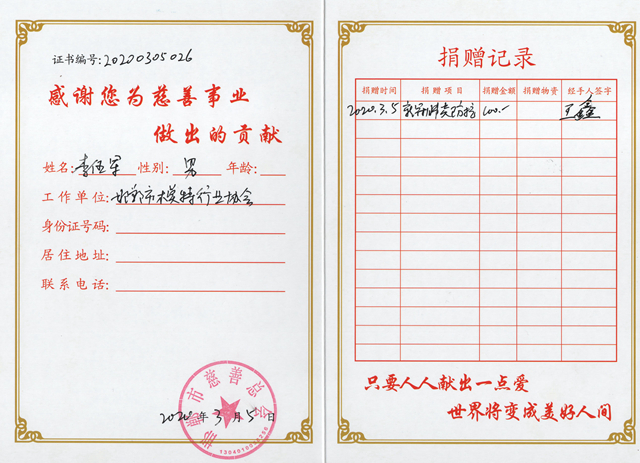 证书编号:20200305026
感谢您为慈善事业
做出的贡献
姓名:李伍军 性别:男 年龄:
工作单位:邯郸市模特行业协会
身份证号码:
居住地址:
联系电话:
邯郸市慈善总会
2020年3月5日
捐赠记录
捐赠时间 捐赠项目 捐赠金额 捐赠物资 经手人签字
2020.3.5 100.- 王鑫
只要人人献出一点爱
世界将变成美好人间